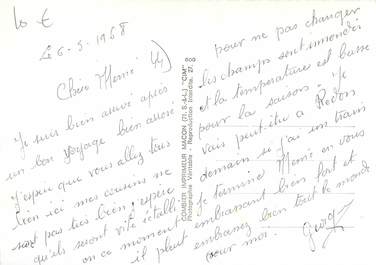 10 €
Le 6-5-1968
Chère Mémé
Je suis bien arrivé après
un bon voyage bien arrosé
J'espère que vous allez très
bien ici mes cousins ne
sont pas très bien j'espère
qu'ils seront vite rétablis
en ce moment
il pleut
COMBIER IMPRIMEUR MACON (71. S.-&-L.) "CIM"
Photographie Véritable - Reproduction Interdite. 27.
pour ne pas changer
les champs sont inondés
et la température est basse
pour la saison. Je
vais peut-être à Redon
demain si j'ai un train
Je termine Mémé en vous
embrassant bien fort et
embrassez bien tout le monde
pour moi.